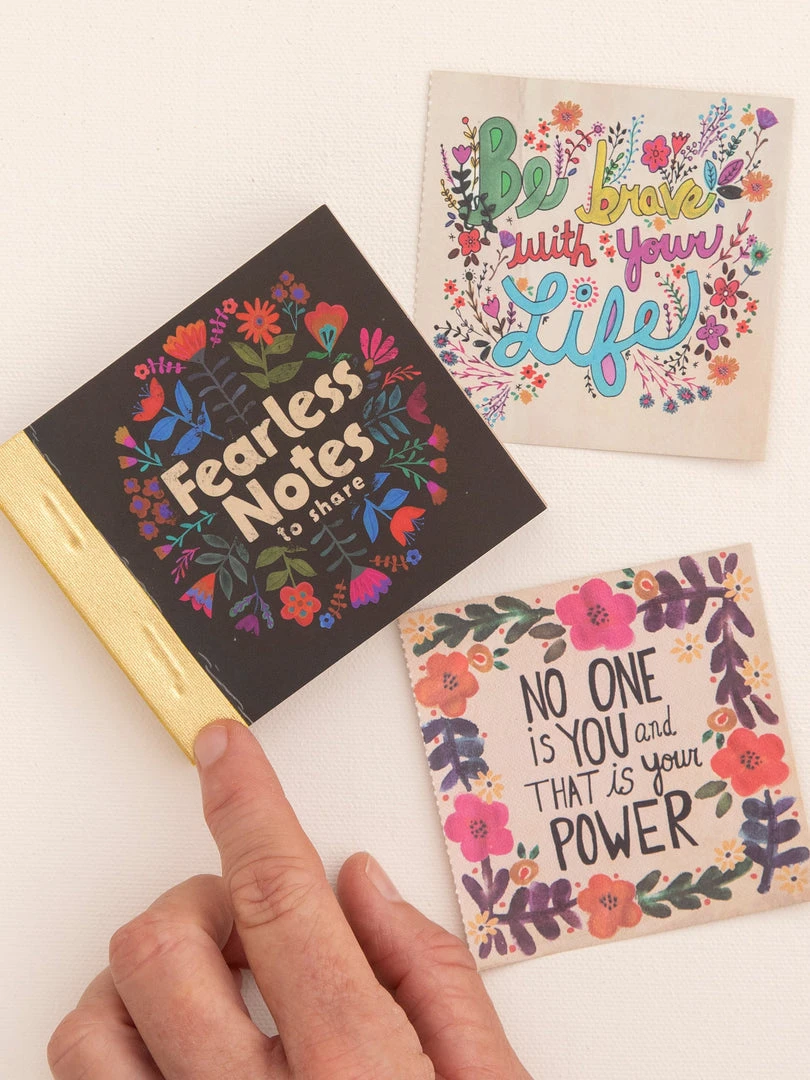 Fearless
Notes
to share
Be brave
with your
Life
NO ONE
is YOU and
THAT is your
POWER